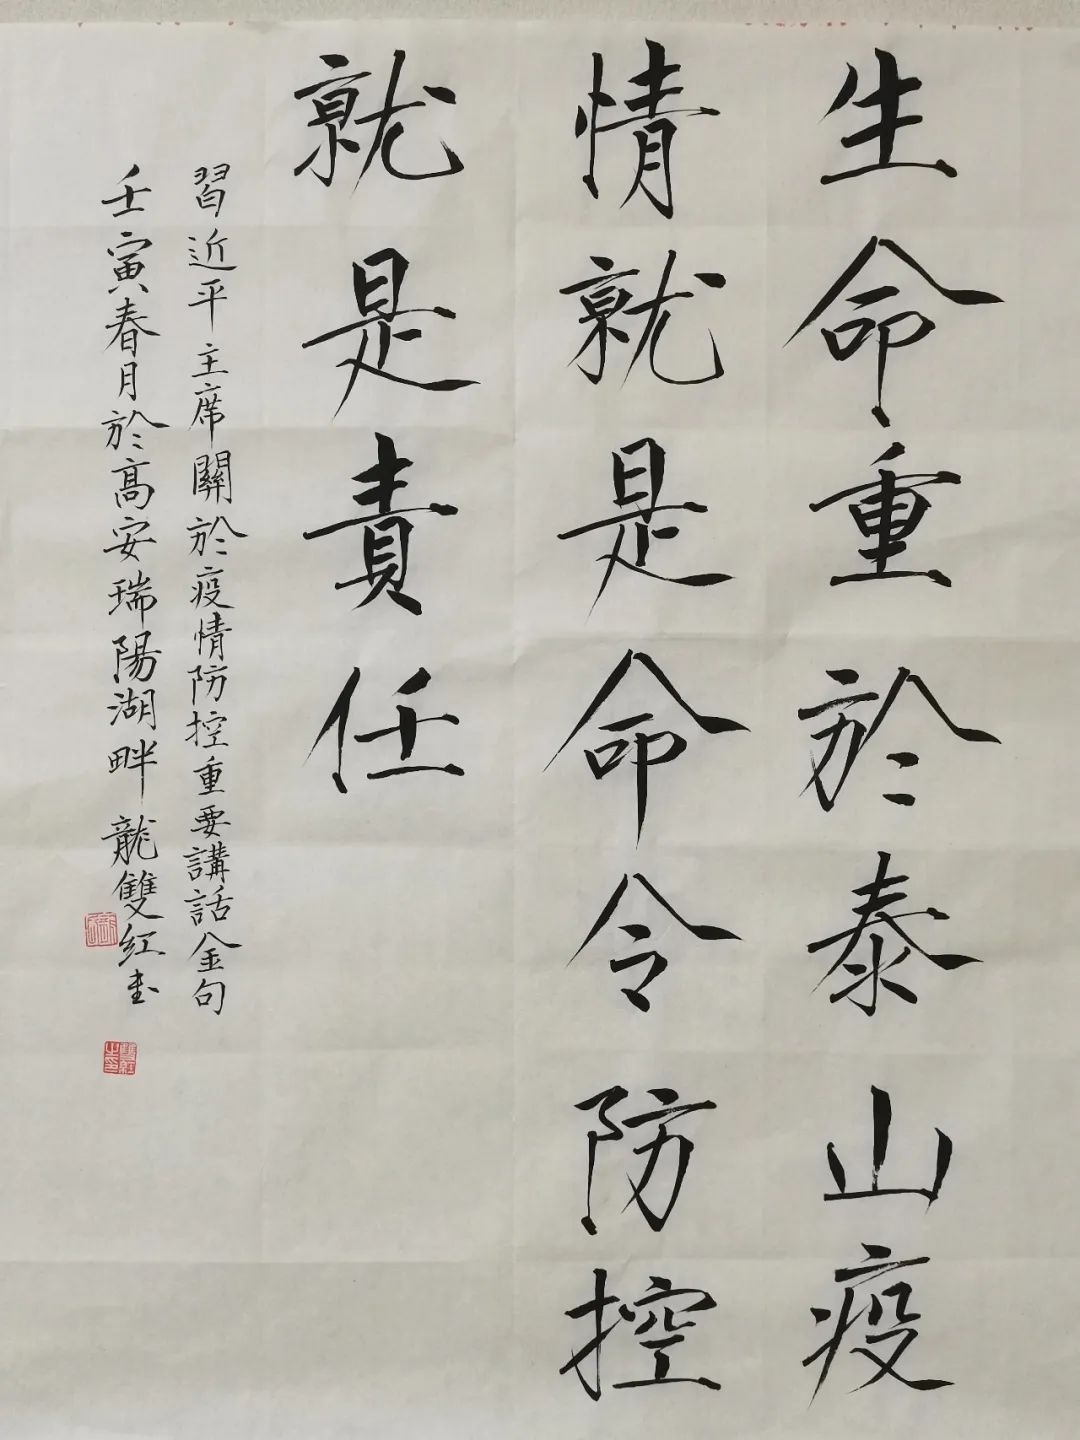 生命重於泰山疫
情就是命令防控
就是責任
習近平主席關於疫情防控重要講話金句
壬寅春月於高安瑞陽湖畔龍雙紅書